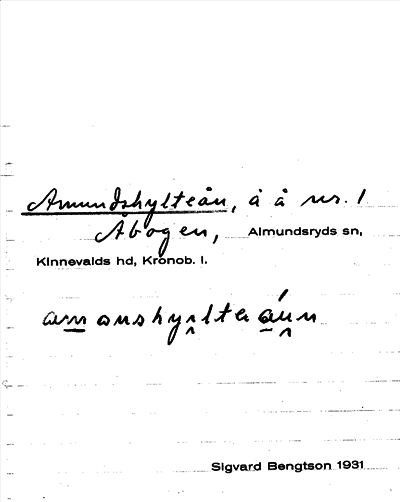 Amundshylteån, å å nr. 1
Åbogen, Almundsryds sn,
Kinnevalds hd, Kronob. l.
Sigvard Bengtson 1931